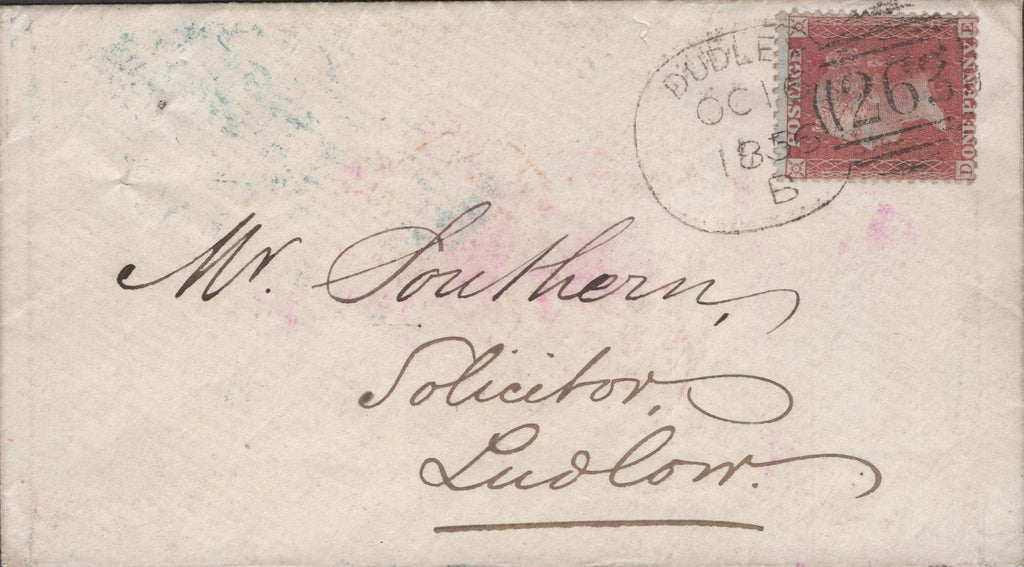 DUDLEY
OC 1
1856
B
POSTAGE
263
ONE PENNY
D
Mr. Southern,
Solicitor,
Ludlow.